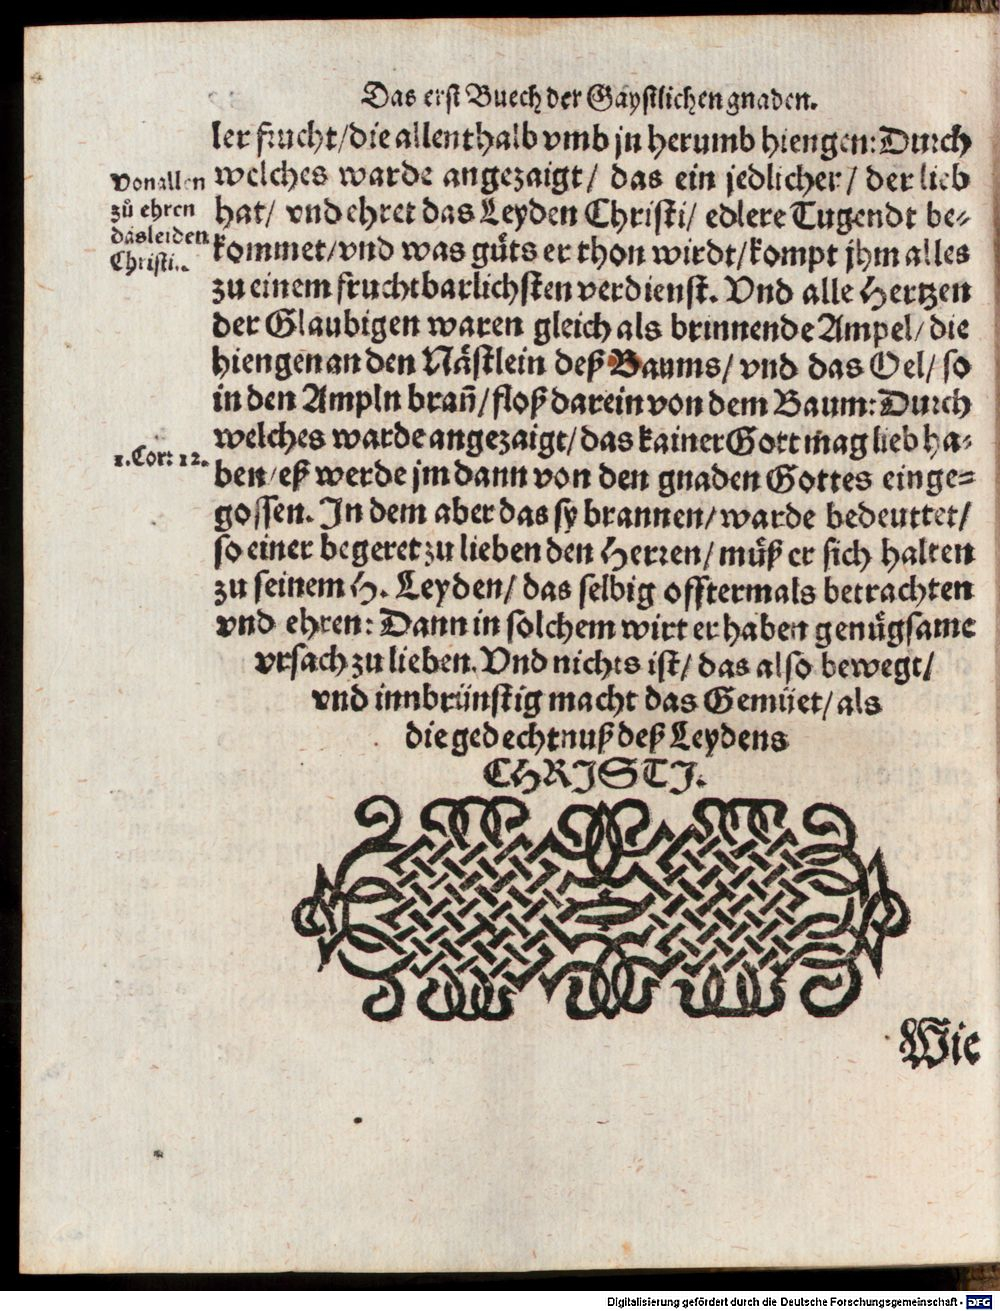 Das erst Buech der Gaystlichen gnaden.
ler frucht/die allenthalb vmb jn herumb hiengen: Durch
welches warde angezaigt/ das ein jedlicher/ der lieb
hat/ vnd ehret das Leyden Christi/ edlere Tugendt be-
kommet/vnd was gůts er thon wirdt/kompt jhm alles
zu einem fruchtbarlichsten verdienst. Vnd alle Hertzen
der Glaubigen waren gleich als brinnende Ampel/ die
hiengen an den Nåstlein deß Baums/ vnd das Oel/ so
in den Ampln brañ/floß darein von dem Baum: Durch
welches warde angezaigt/das kainer Gott mag lieb ha-
ben/eß werde jm dann von den gnaden Gottes einge-
gossen. In dem aber das sy brannen/warde bedeuttet/
so einer begeret zu lieben den Herren/ můß er sich halten
zu seinem H. Leyden/ das selbig offtermals betrachten
vnd ehren: Dann in solchem wirt er haben genůgsame
vrsach zu lieben. Vnd nichts ist/ das also bewegt/
vnd innbrünstig macht das Gemüet/ als
die gedechtnuß deß Leydens
CHRISTI.
Von allen
zů ehren
das leiden
Christi.
1. Cor: 12.
Wie
Digitalisierung gefördert durch die Deutsche Forschungsgemeinschaft - DFG